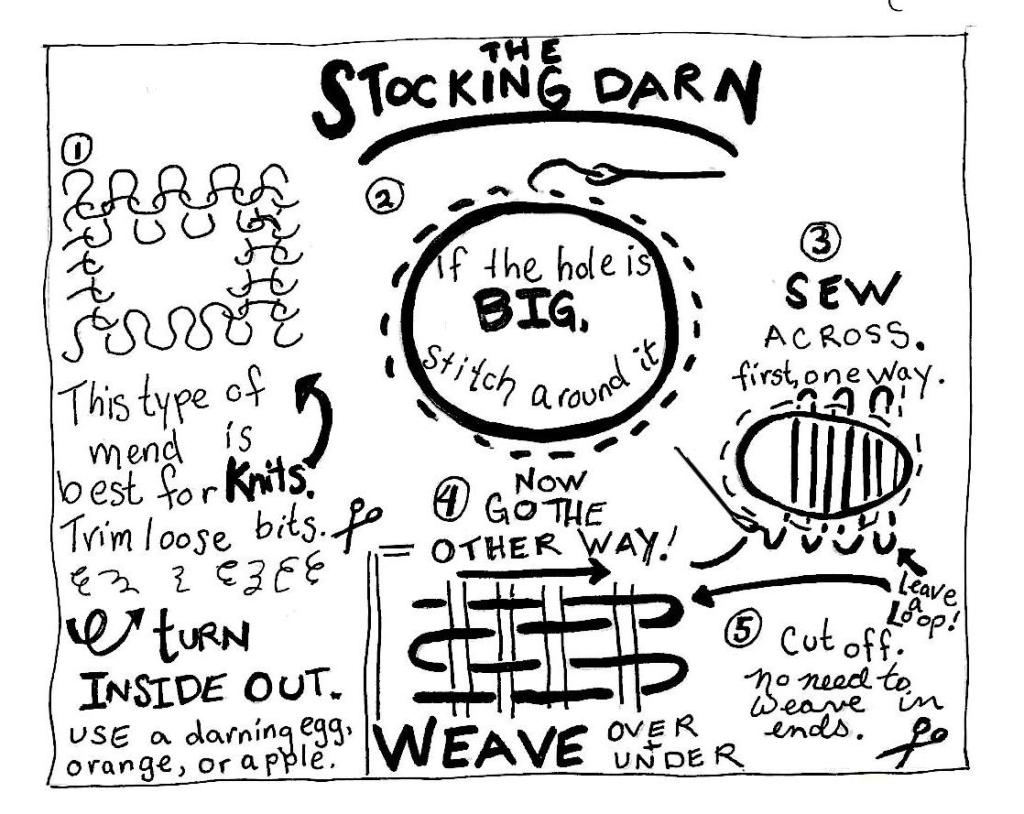 THE
STOCKING DARN
1
This type of
mend is
best for Knits.
Trim loose bits.
TURN
INSIDE OUT.
USE a darning egg,
orange, or apple.
2
If the hole is
BIG,
stitch around it
3
SEW
ACROSS.
first, one way.
Leave
a
Loop!
4
NOW
GO THE
OTHER WAY!
WEAVE OVER
+
UNDER
5
Cut off.
no need to
weave in
ends.